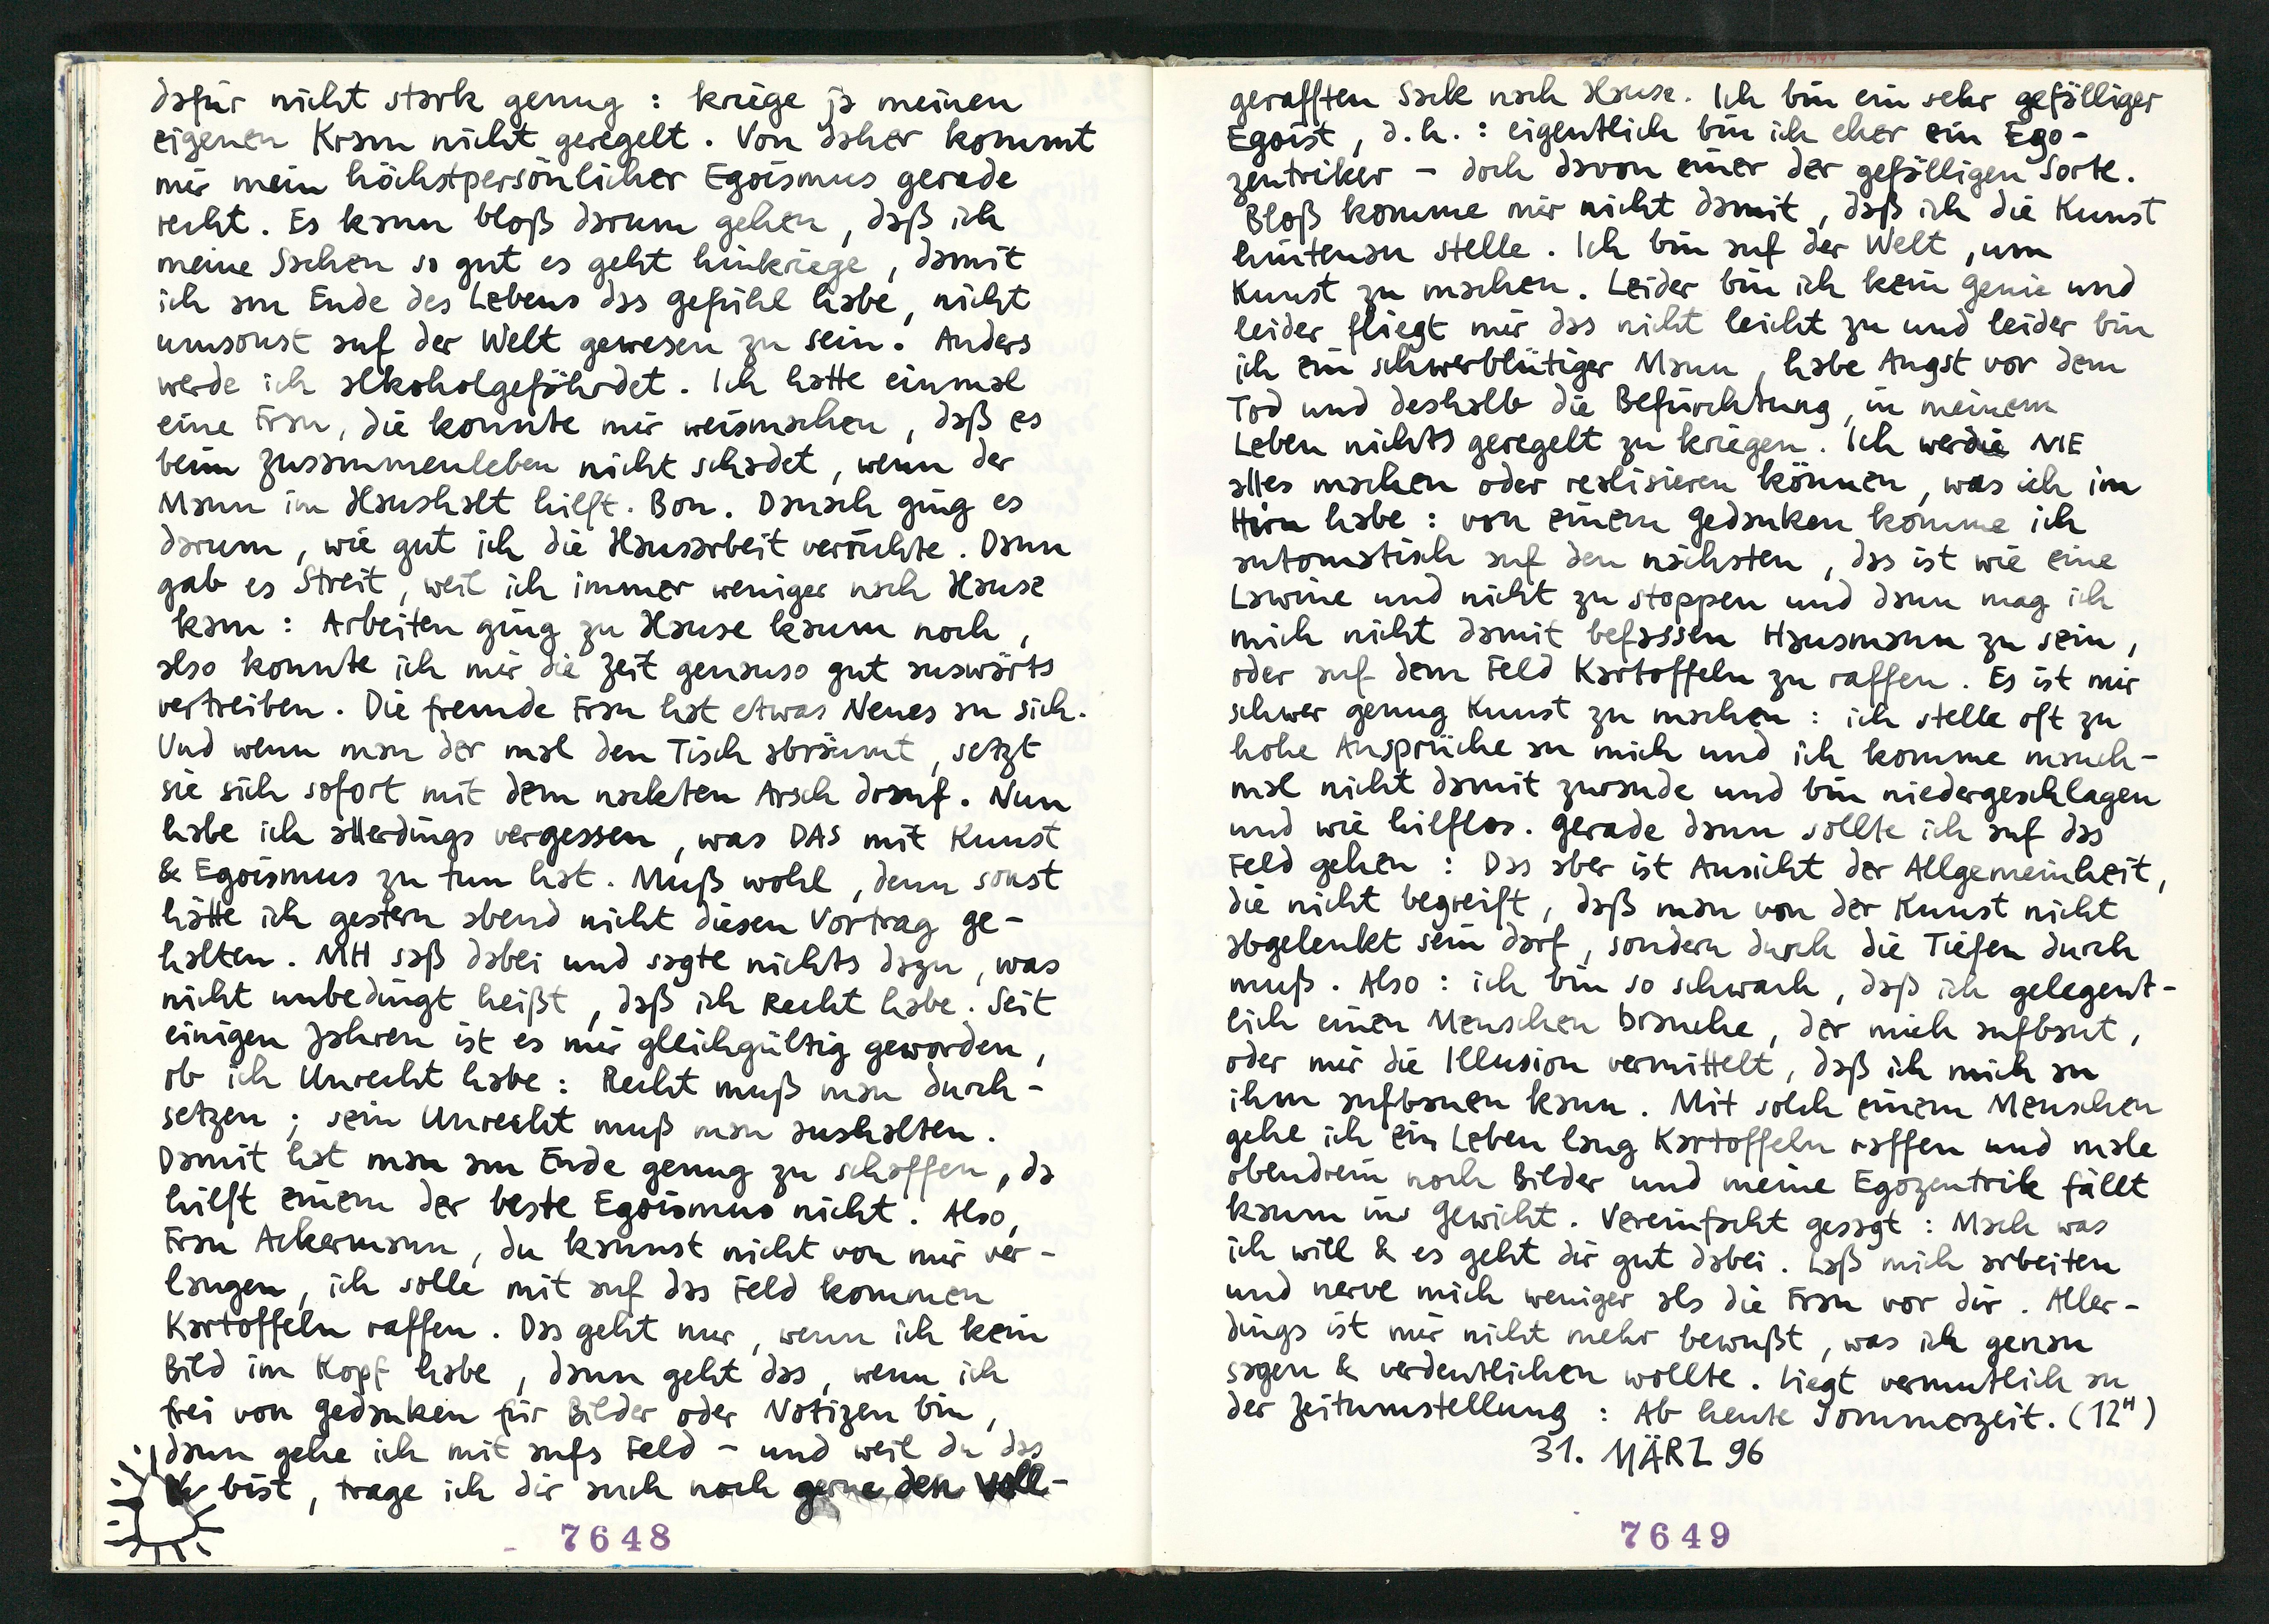 dafür nicht stark genug : kriege ja meinen
eigenen Kram nicht geregelt. Von daher kommt
mir mein höchstpersönlicher Egoismus gerade
recht. Es kann bloß darum gehen, daß ich
meine Sachen so gut es geht hinkriege, damit
ich am Ende des Lebens das Gefühl habe, nicht
umsonst auf der Welt gewesen zu sein. Anders
werde ich alkoholgefährdet. Ich hatte einmal
eine Frau, die konnte mir weismachen, daß es
beim Zusammenleben nicht schadet, wenn der
Mann im Haushalt hilft. Bon. Danach ging es
darum, wie gut ich die Hausarbeit verrichte. Dann
gab es Streit, weil ich immer weniger nach Hause
kam : Arbeiten ging zu Hause kaum noch,
also konnte ich mir die Zeit genauso gut auswärts
vertreiben. Die fremde Frau hat etwas Neues an sich.
Und wenn man der mal den Tisch abräumt, setzt
sie sich sofort mit dem nackten Arsch drauf. Nun
habe ich allerdings vergessen, was DAS mit Kunst
& Egoismus zu tun hat. Muß wohl, denn sonst
hätte ich gestern abend nicht diesen Vortrag ge-
halten. MH saß dabei und sagte nichts dazu, was
nicht unbedingt heißt, daß ich Recht habe. Seit
einigen Jahren ist es mir gleichgültig geworden,
ob ich Unrecht habe : Recht muß man durch-
setzen ; sein Unrecht muß man aushalten.
Damit hat man am Ende genug zu schaffen, da
hilft einem der beste Egoismus nicht. Also,
Frau Ackermann, du kannst nicht von mir ver-
langen, ich solle mit auf das Feld kommen
Kartoffeln raffen. Das geht nur, wenn ich kein
Bild im Kopf habe, dann geht das, wenn ich
frei von Gedanken für Bilder oder Notizen bin,
dann gehe ich mit aufs Feld – und weil du das
bist, trage ich dir auch noch gerne den voll-
7648
gerafften Sack nach Hause. Ich bin ein sehr gefälliger
Egoist, d.h. : eigentlich bin ich eher ein Ego-
zentriker – doch davon einer der gefälligen Sorte.
Bloß komme mir nicht damit, daß ich die Kunst
hintenan stelle. Ich bin auf der Welt, um
Kunst zu machen. Leider bin ich kein Genie und
leider fliegt mir das nicht leicht zu und leider bin
ich ein schwerblütiger Mann, habe Angst vor dem
Tod und deshalb die Befürchtung, in meinem
Leben nichts geregelt zu kriegen. Ich werde NIE
alles machen oder realisieren können, was ich im
Hirn habe : von einem Gedanken komme ich
automatisch auf den nächsten, das ist wie eine
Lawine und nicht zu stoppen und dann mag ich
mich nicht damit befassen Hausmann zu sein,
oder auf dem Feld Kartoffeln zu raffen. Es ist mir
schwer genug Kunst zu machen : ich stelle oft zu
hohe Ansprüche an mich und ich komme manch-
mal nicht damit zurande und bin niedergeschlagen
und wie hilflos. Gerade dann sollte ich auf das
Feld gehen : Das aber ist Ansicht der Allgemeinheit,
die nicht begreift, daß man von der Kunst nicht
abgelenkt sein darf, sondern durch die Tiefen durch
muß. Also : ich bin so schwach, daß ich gelegent-
lich einen Menschen brauche, der mich aufbaut,
oder mir die Illusion vermittelt, daß ich mich an
ihm aufbauen kann. Mit solch einem Menschen
gehe ich ein Leben lang Kartoffeln raffen und male
obendrein noch Bilder und meine Egozentrik fällt
kaum ins Gewicht. Vereinfacht gesagt : Mach was
ich will & es geht dir gut dabei. Laß mich arbeiten
und nerve mich weniger als die Frau vor dir. Aller-
dings ist mir nicht mehr bewußt, was ich genau
sagen & verdeutlichen wollte. Liegt vermutlich an
der Zeitumstellung : Ab heute Sommerzeit. (12H)
31. MÄRZ 96
7649